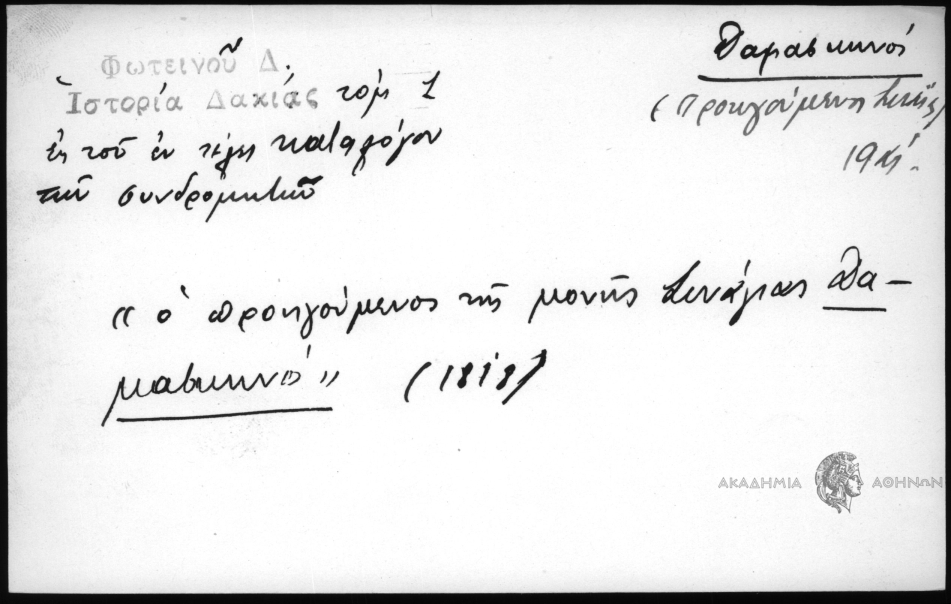 Φωτεινοῦ Δ.
Ἱστορία Δακίας τόμ 1
ἐκ τοῦ ἐν τέλει καταλόγου
τῶν συνδρομητῶν
Δαμασκηνός
(Προηγούμενος Σιναΐας)
19ος
« ὁ προηγούμενος τῆς μονῆς Σινάγιας Δα-
μασκηνός » (1818)
ΑΚΑΔΗΜΙΑ ΑΘΗΝΩΝ